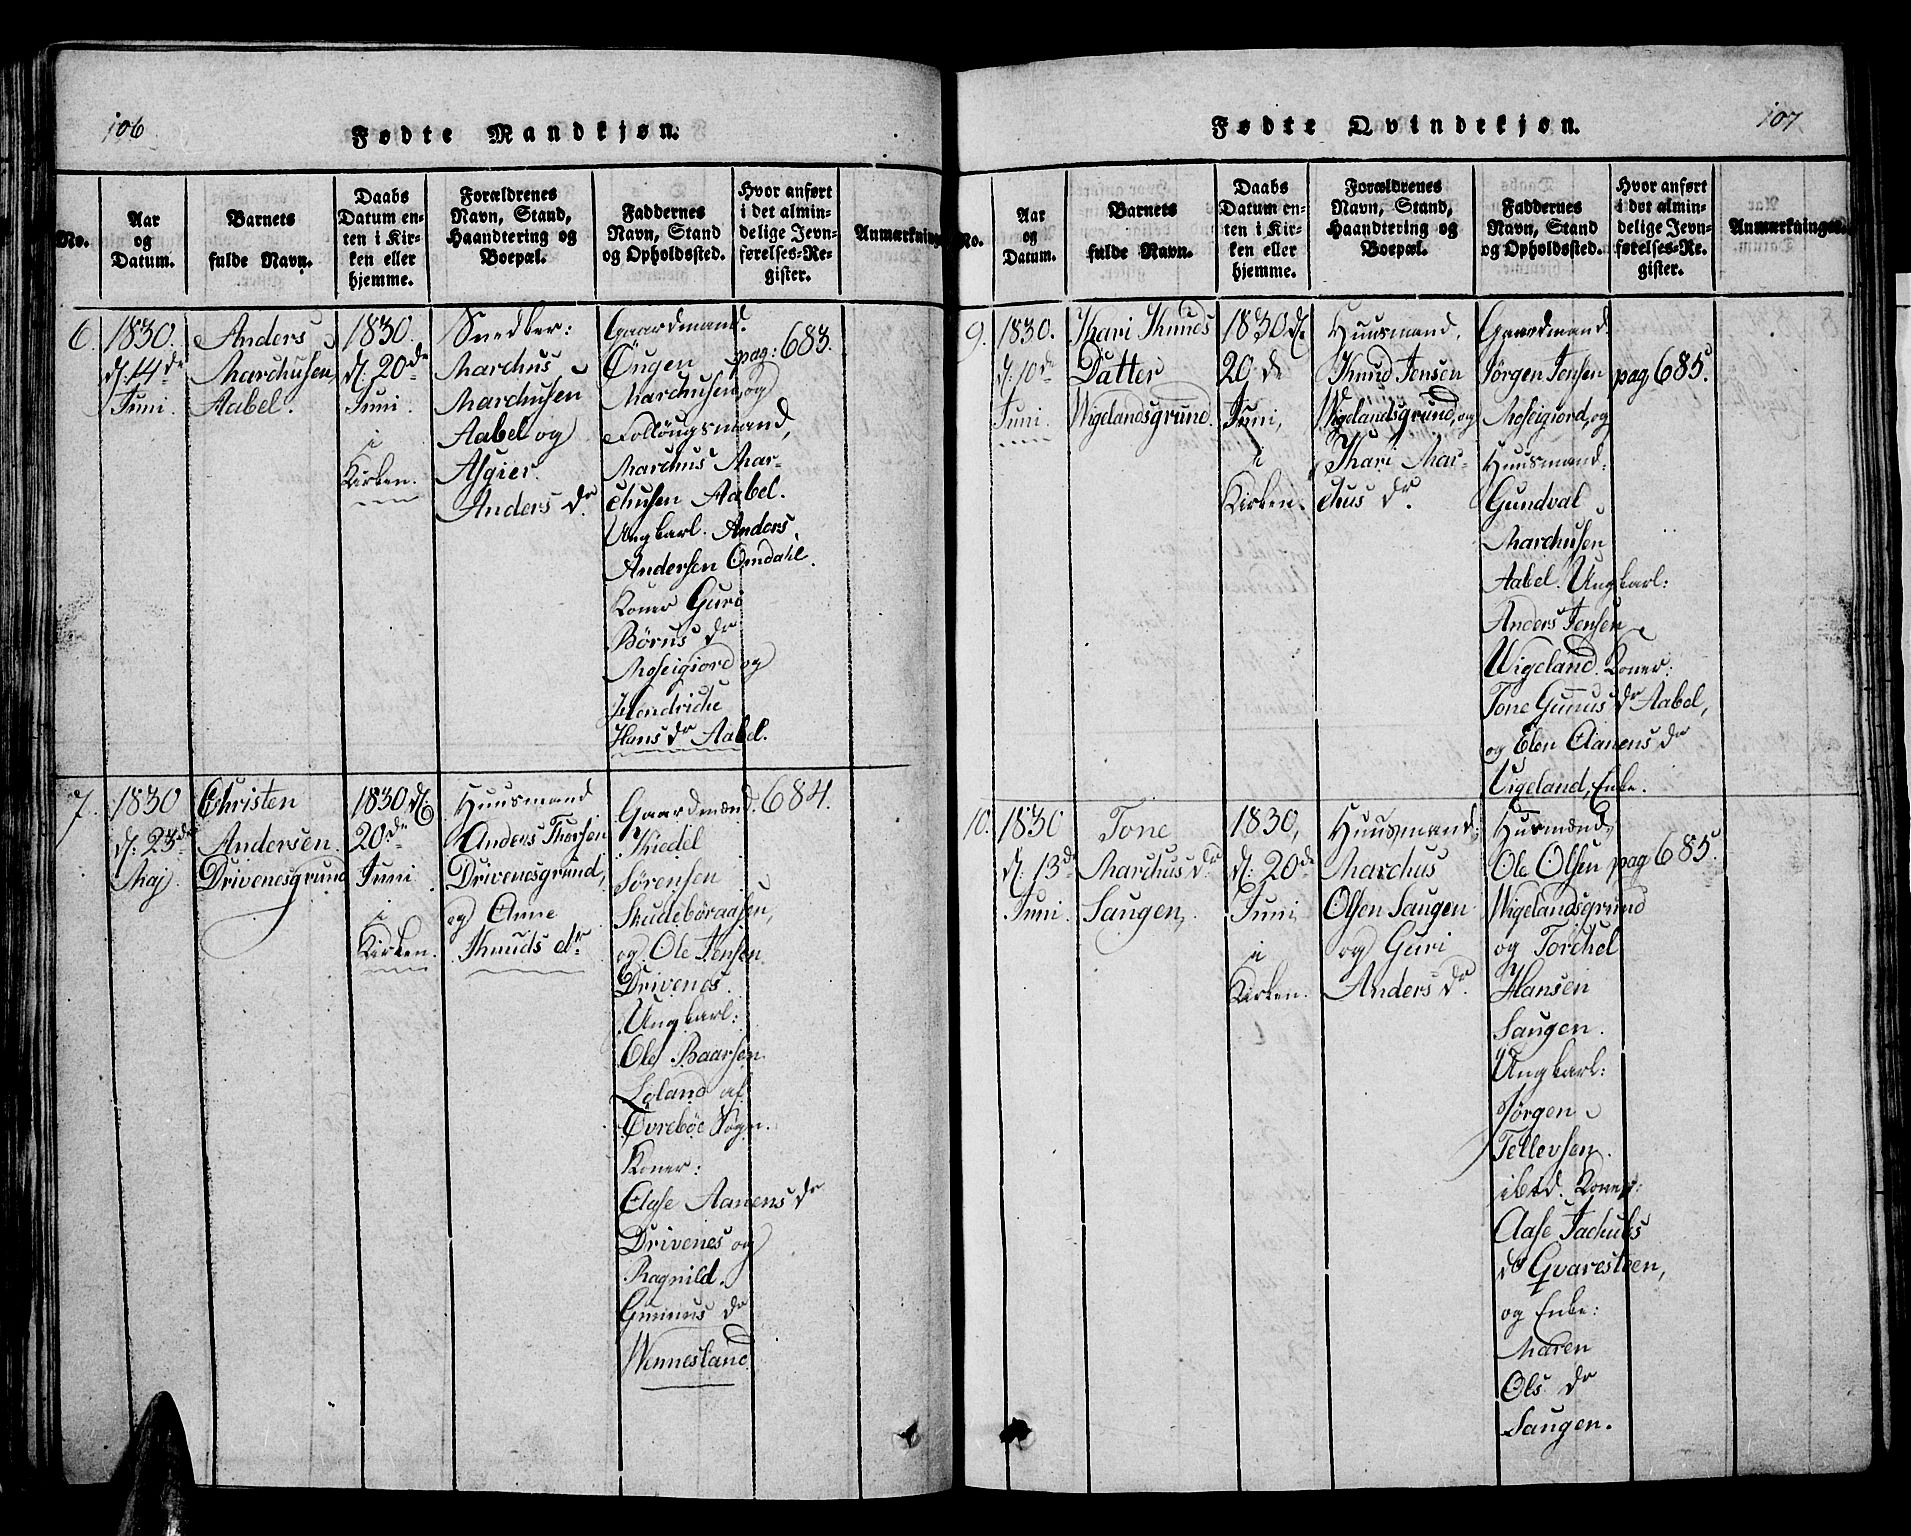 106.
Fødte Mandkjøn.
No.
Aar
og
Datum.
Barnets
fulde Navn.
Daabs
Datum en-
ten i Kir-
ken eller
hjemme.
Forældrenes
Navn, Stand,
Haandtering og
Boepæl.
Faddernes
Navn, Stand
og Opholdssted.
Hvor anført
i det almin-
delige Jevn-
førelses-Re-
gister.
Anmærkning
6.
1830.
d: 14de
Juni.
Anders
Marchusen
Aabel.
1830.
d: 20de
Juni.
i
Kirken.
Snedker:
Marchus
Marchusen
Aabel og
Asgier
Anders dr.
Gaardmand.
Öugen
Marchusen, og
Follöugsmand,
Marchus Mar-
chusen Aabel.
Ungkarl. Anders
Andersen Omdahl.
Koner Guri
Börus dr
Moseigiord og
Hendriche
Hans dr Aabel.
pag: 683.
7.
1830
d: 23de
Maj.
Christen
Andersen
Drivenesgrund
1830 d:
20de
Juni
i
Kirken.
Huusmand
Anders Thorsen
Drivenesgrund,
og Anne
Knuds dr
Gaardmænd.
Kiedel
Sörensen
Skudeböraasen,
og Ole Jensen
Drivenes.
Ungkarl:
Ole Baarsen
Löland af
Övreböe Sogn.
Koner:
Aase Aanens dr
Drivenes og
Ragnild.
Gunnus dr
Wennesland
684.
107
Fødte Qvindekjøn.
No.
Aar
og
Datum.
Barnets
fulde Navn.
Daabs
Datum en-
ten i Kir-
ken eller
hjemme.
Forældrenes
Navn, Stand,
Haandtering og
Boepæl.
Faddernes
Navn, Stand
og Opholdssted.
Hvor anført
i det almin-
delige Jevn-
førelses-Re-
gister.
Anmærkninger.
9.
1830.
d: 10de
Juni.
Thari Knuds
Datter
Wigelandsgrund.
1830 d:
20 de
Juni,
i
Kirken.
Huusmand.
Knud Jensen
Wigelandsgrund, og
Thari Mar-
chus dr.
Gaardmand
Jörgen Jensen
Moseigiord, og
Huusmand:
Gundval
Marchusen
Aabel. Ungkarl:
Anders Jensen
Wigeland. Koner:
Tone Gunus dr Aabel,
og Elen Aanens dr
Vigeland, Enke.
pag 685.
10.
1830
d: 13de
Juni.
Tone
Marchus dr
Saugen,
1830,
d: 20de
Juni,
i
Kirken.
Huusmand:
Marchus
Olsen Saugen
og Guri
Anders dr.
Husmænd,
Ole Olsen
Wigelandsgrund
og Torchel
Hansen
Saugen.
Ungkarl:
Jörgen
Tellevsen
ibid. Koner:
Aase Jachubs
dr Qvaresteen,
og Enke:
Maren
Ols dr
Saugen.
pag 685.